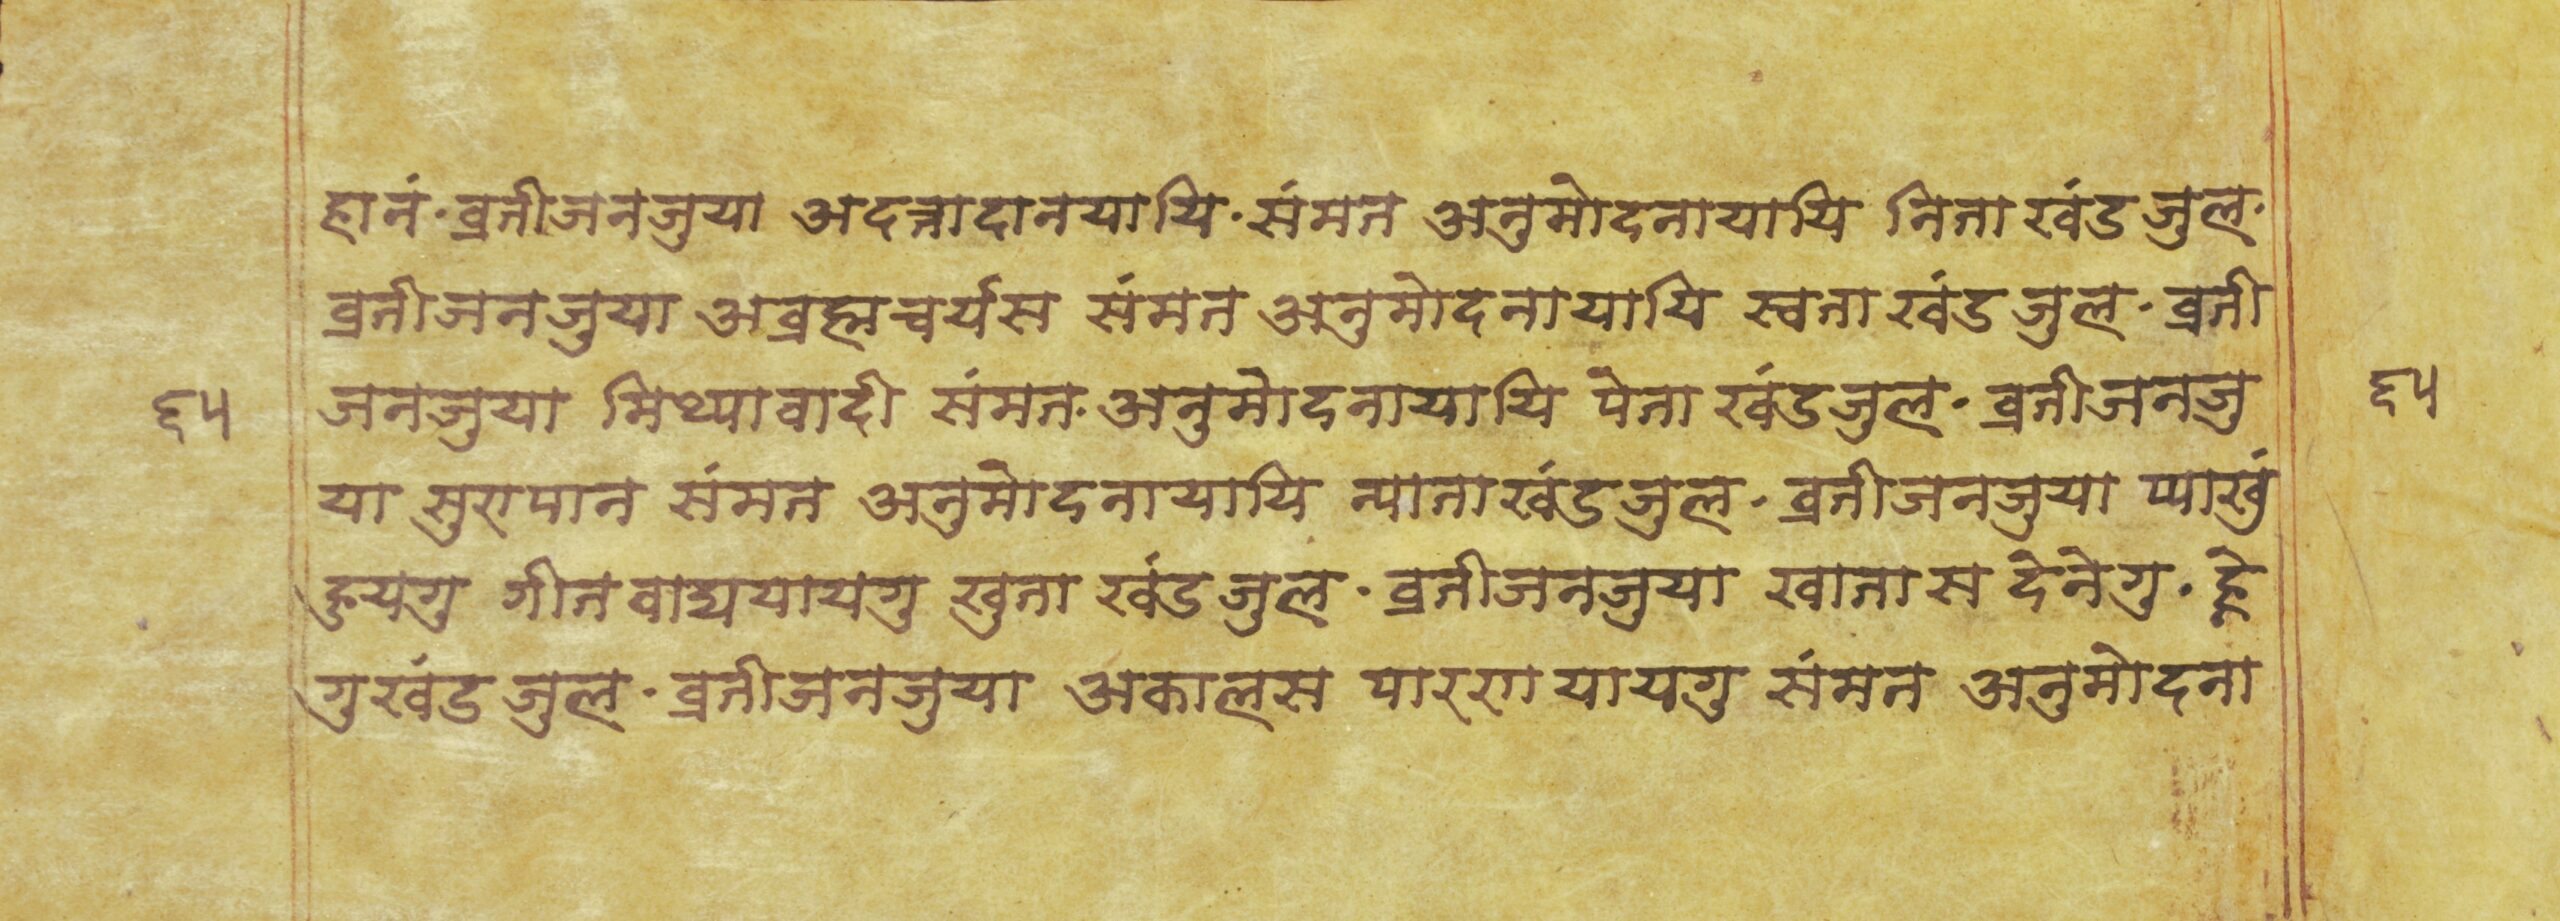 ह्रानं॰ व्रतीजनजुया अदत्तादानयायि॰ संमत अनुमोदनायायि निता खंड जुल॰
व्रतीजनजुया अब्रह्मचर्यस संमत अनुमोदनायायि स्वता खंड जुल॰ व्रती
६५ जनजुया मिथ्यावादी संमत॰ अनुमोदनायायि पेता खंडजुल॰ व्रतीजनजु ६५
या सुरापान संमत अनुमोदनायायि न्याता खंडजुल॰ व्रतीजनजुया प्याखुं
हुयगु गीतवाद्ययायगु खुता खंड जुल॰ व्रतीजनजुया खातास देनेगु॰ ह्ने
गु खंड जुल॰ व्रतीजनजुया अकालस पारणा यायगु संमत अनुमोदना